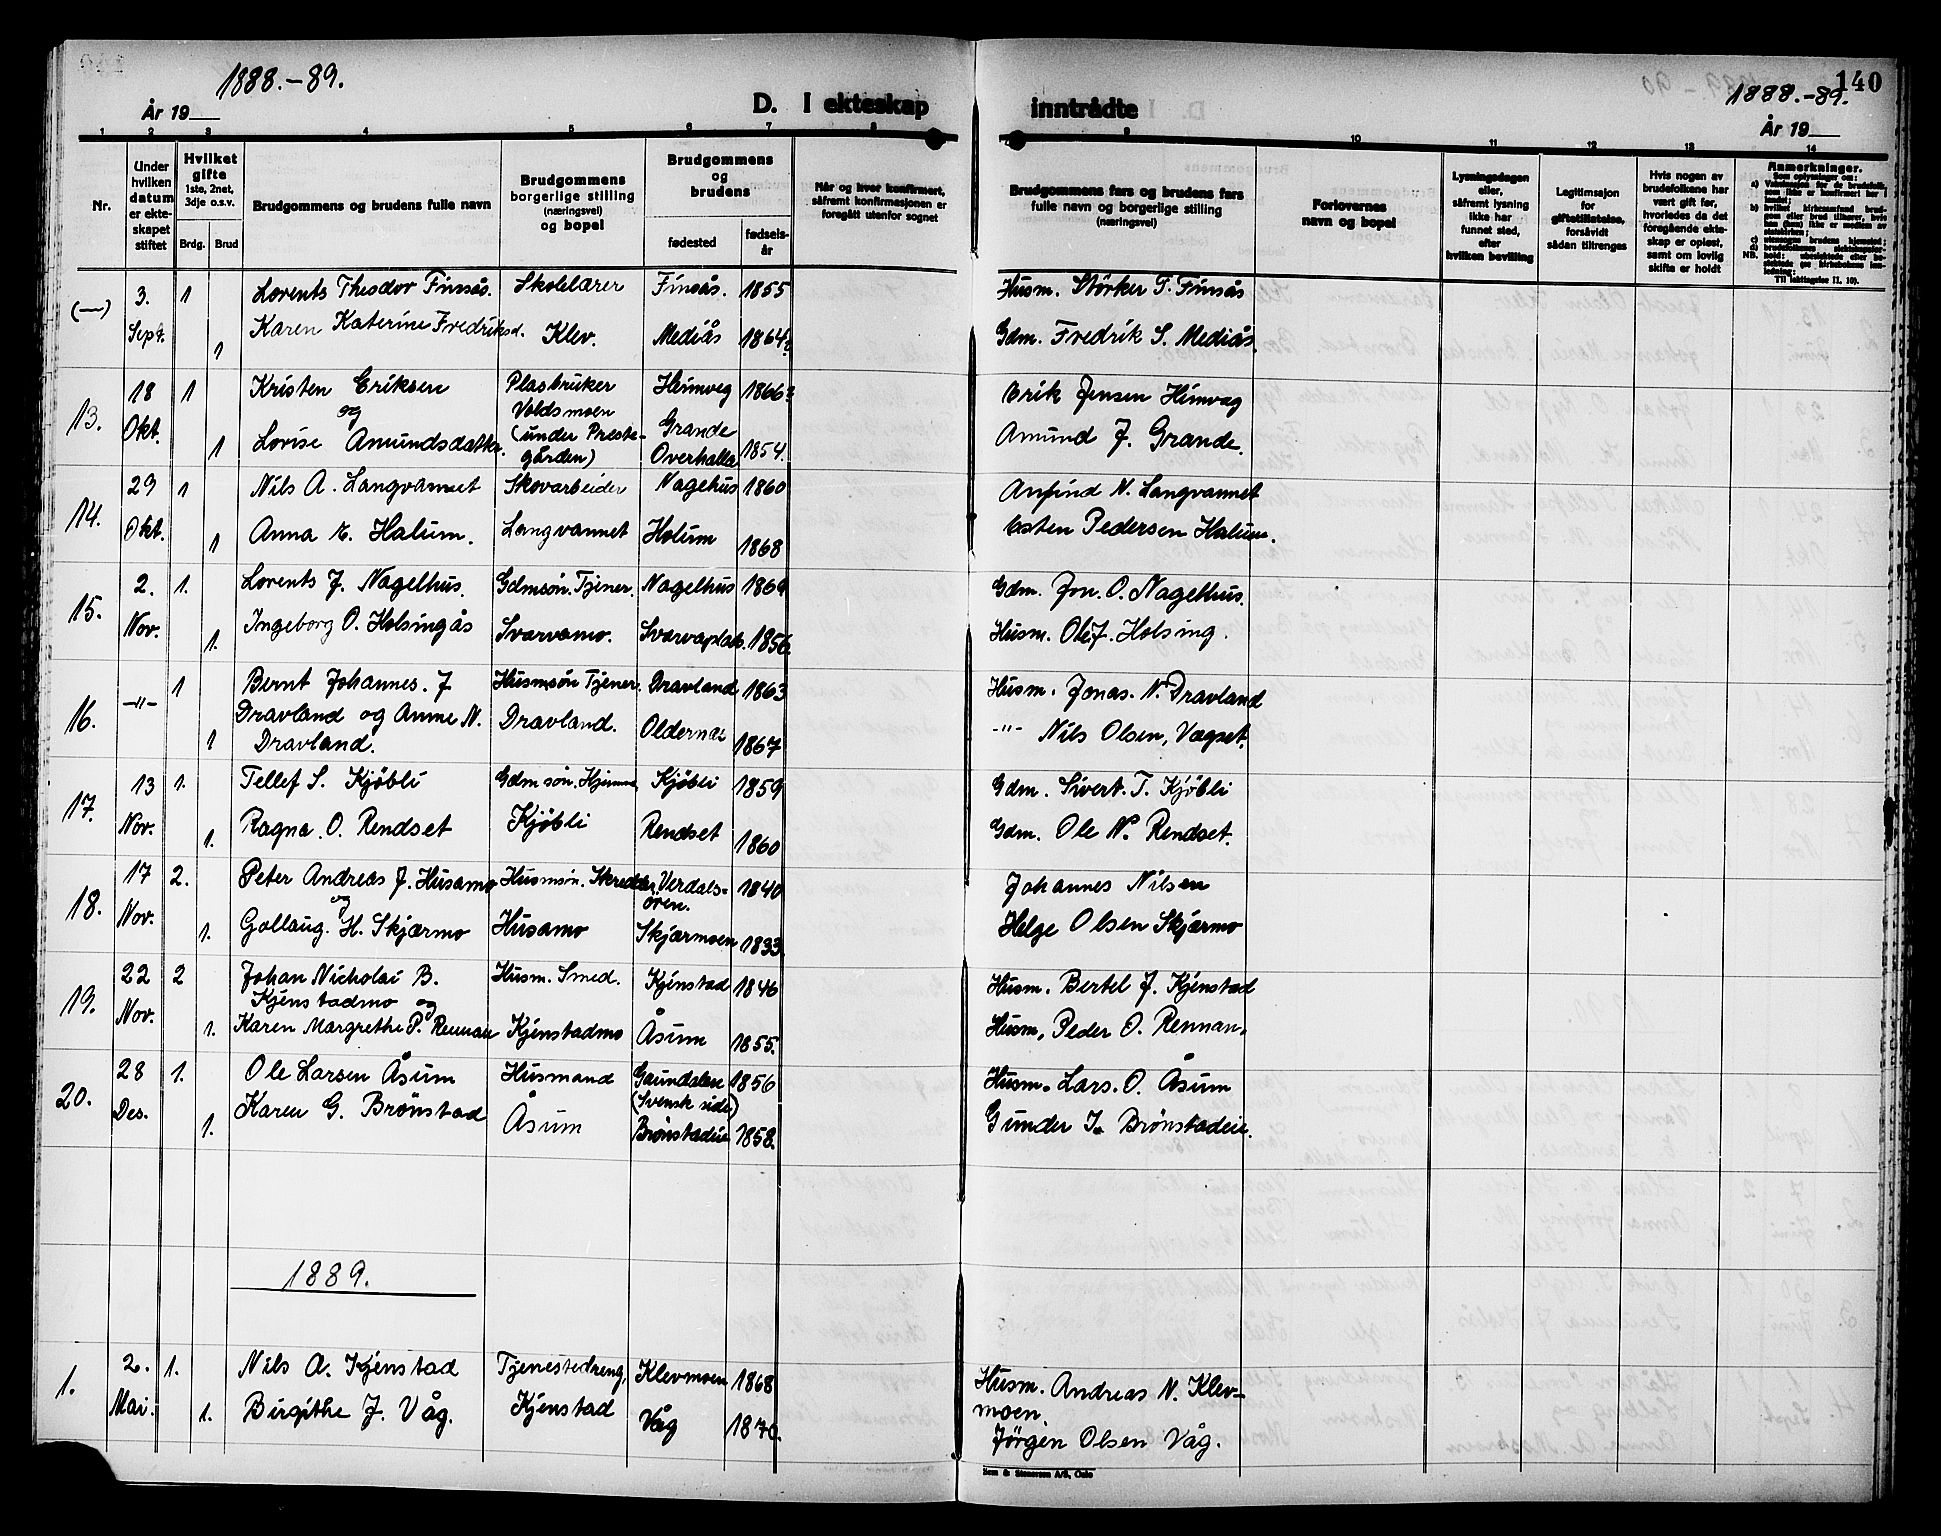 1888.-89.
År 19
D. I ekteskap
inntrådte
140
1888.-89.
År 19
1 2 3 4 5 6 7 8 9 10 11 12 13 14
Nr.
Under hvilken datum er ekteskapet stiftet
Hvilket gifte
1ste, 2net, 3dje o.s.v.
Brdg. Brud
Brudgommens og brudens fulle navn
Brudgommens borgerlige stilling (næringsvei) og bopel
Brudgommens og brudens
fødested
fødselsår
Når og hvor konfirmert, såfremt konfirmasjonen er foregått utenfor sognet
Brudgommens fars og brudens fars fulle navn og borgerlige stilling (næringsvei)
Forlovernes navn og bopel
Lysningsdagen eller, såfremt lysning ikke har funnet sted, efter hvilken bevilling
Legitimasjon for giftetillatelse, forsåvidt sådan tiltrenges
Hvis nogen av brudefolkene har vært gift før, hvorledes da det foregående ekteskap er opløst, samt om lovlig skifte er holdt
Anmerkninger.
(—) 3. 1 Lorents Theodor Finsås. Skolelærer Finsås. 1855 Husm. Störker T. Finsås
Sept. 1 Karen Katerine Fredriksd. Klev. Mediås 1864? Gdm. Fredrik S. Mediås.
13. 18 1 Kristen Eriksen Plasbruker Heimveg 1866? Erik Jensen Himvag
og Voldsmoen
Okt. 1 Lovise Amundsdatter. (under Preste- Grande 1854. Amund J. Grande.
gården) Overhalla
14. 29 1 Nils A. Langvannet Skovarbeider Nagehus 1860 Anfind N. Langvannet
Okt. 1 Anna E. Halum. Langvannet Holum 1868 Esten Pedersen Halum.
15. 2. 1. Lorents J. Nagelhus. Gdmsøn. Tjener. Nagelhus 1869 Gdm. Jon. O. Nagelhus.
Nov. 1. Ingeborg O. Holsingås Svarvamo. 1856. Husm. Ole J. Holsing.
16. -"- 1 Bernt Johannes. J Husmsøn Tjener. Dravland 1863 Husm. Jonas. N. Dravland
Dravland og Anne N. Dravland. Oldernæs -"- Nils Olsen, Vægset.
1 Dravland. 1867
17. 13 1. Tellef S. Kjöbli Gdm søn. Kjöbli 1859 Gdm. Sivert. T. Kjöbli
Nov. 1. Ragna. O. Rendset Kjöbli Rendset 1860 Gdm. Ole N. Rendset.
18. 17 2. Peter Andreas J. Husamo Husmsøn. Skredder Verdals- 1840 Johannes Nilsen
og ören.
Nov. 1. Gollaug. H. Skjærmo Husamo Skjærmoen 1833. Helge Olsen Skjærmo
19. 22 2 Johan Nicholai B. Husm. Smed. Kjenstad 1846 Husm. Bertel J. Kjenstad
Kjenstadmo og
Nov. 1. Karen Margrethe P. Rennan Kjenstadmo Åsum 1855. Husm, Peder O. Rennan.
20. 28 1. Ole Larsen Åsum Husmand Gaundalen 1856 Husm. Lars. O. Åsum
(Svensk side)
Des. 1. Karen G. Brönstad Åsum Brönstadeie 1858. Gunder I. Brönstadeie.
1889.
1. 2. 1. Nils A. Kjenstad Tjenestedreng, Klevmoen 1868 Husm. Andreas N. Klev-
moen.
Mai. 1. Birgithe J. Våg. Kjenstad Våg 1870. Jörgen Olsen Våg.
Sem & Stenersen A/S, Oslo